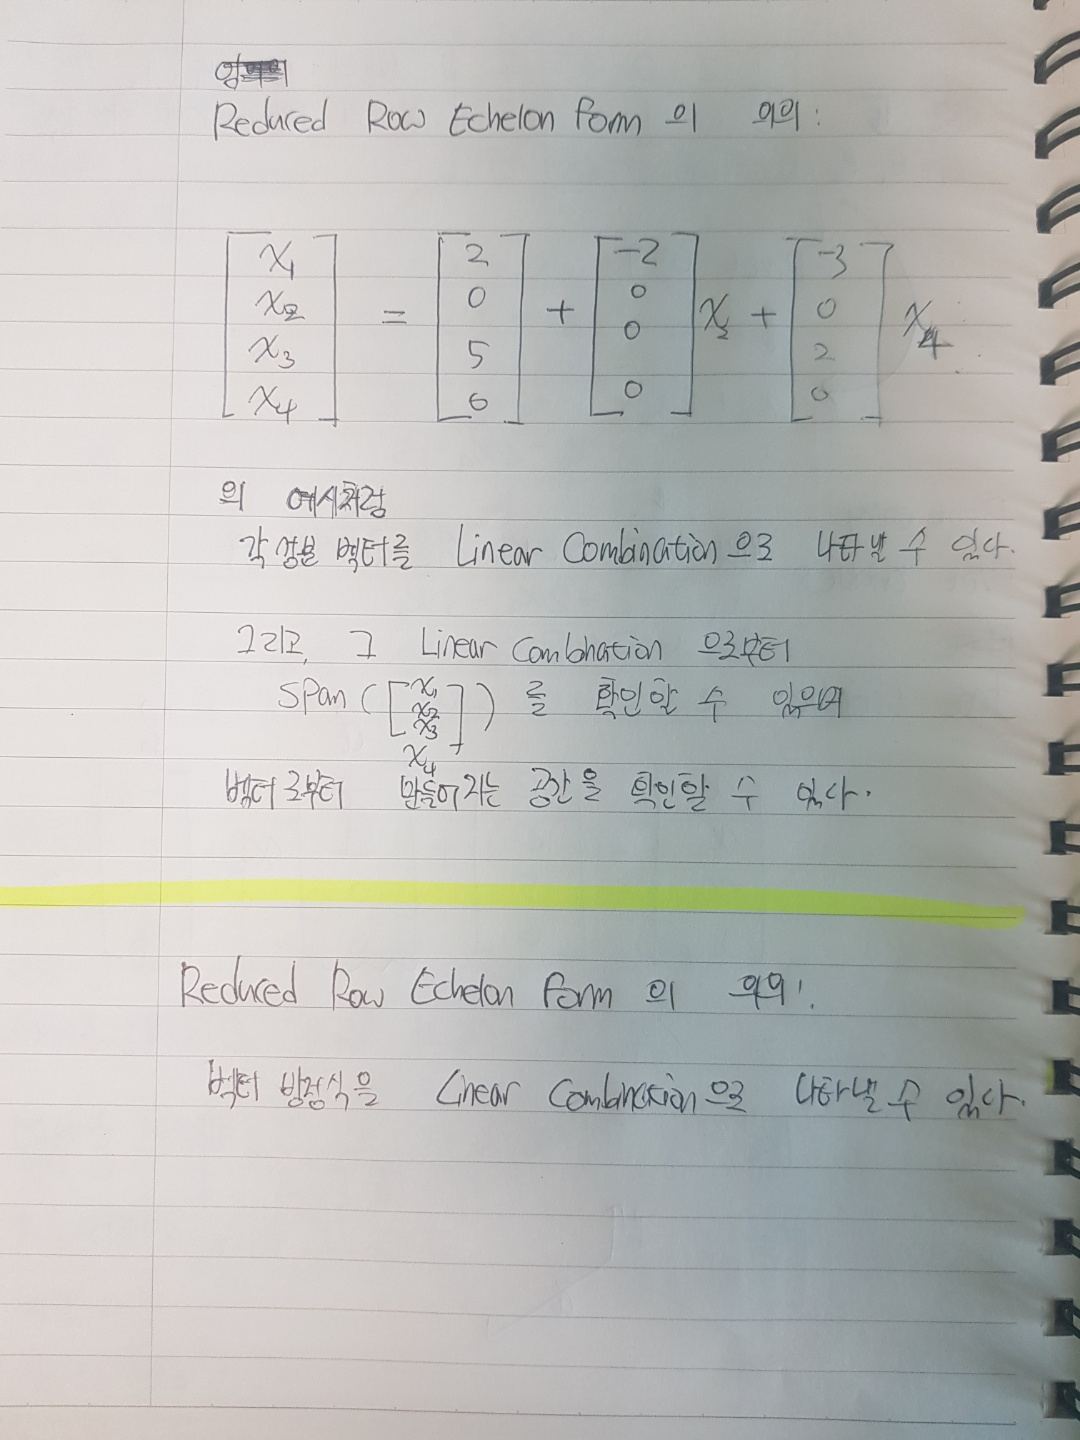 Reduced Row Echelon form 의 의의 :
[x₁ x₂ x₃ x₄] = [2 0 5 0] + [-2 0 0 0] x₂ + [-3 0 2 0] x₄
의 예시처럼
각 성분 벡터를 Linear Combination 으로 나타낼 수 있다.
그리고, 그 Linear Combination 으로부터
Span ([x₁ x₂ x₃ x₄]) 를 확인할 수 있으며
벡터로부터 만들어지는 공간을 확인할 수 있다.
Reduced Row Echelon form 의 의의 :
벡터 방정식을 Linear Combination 으로 나타낼 수 있다.